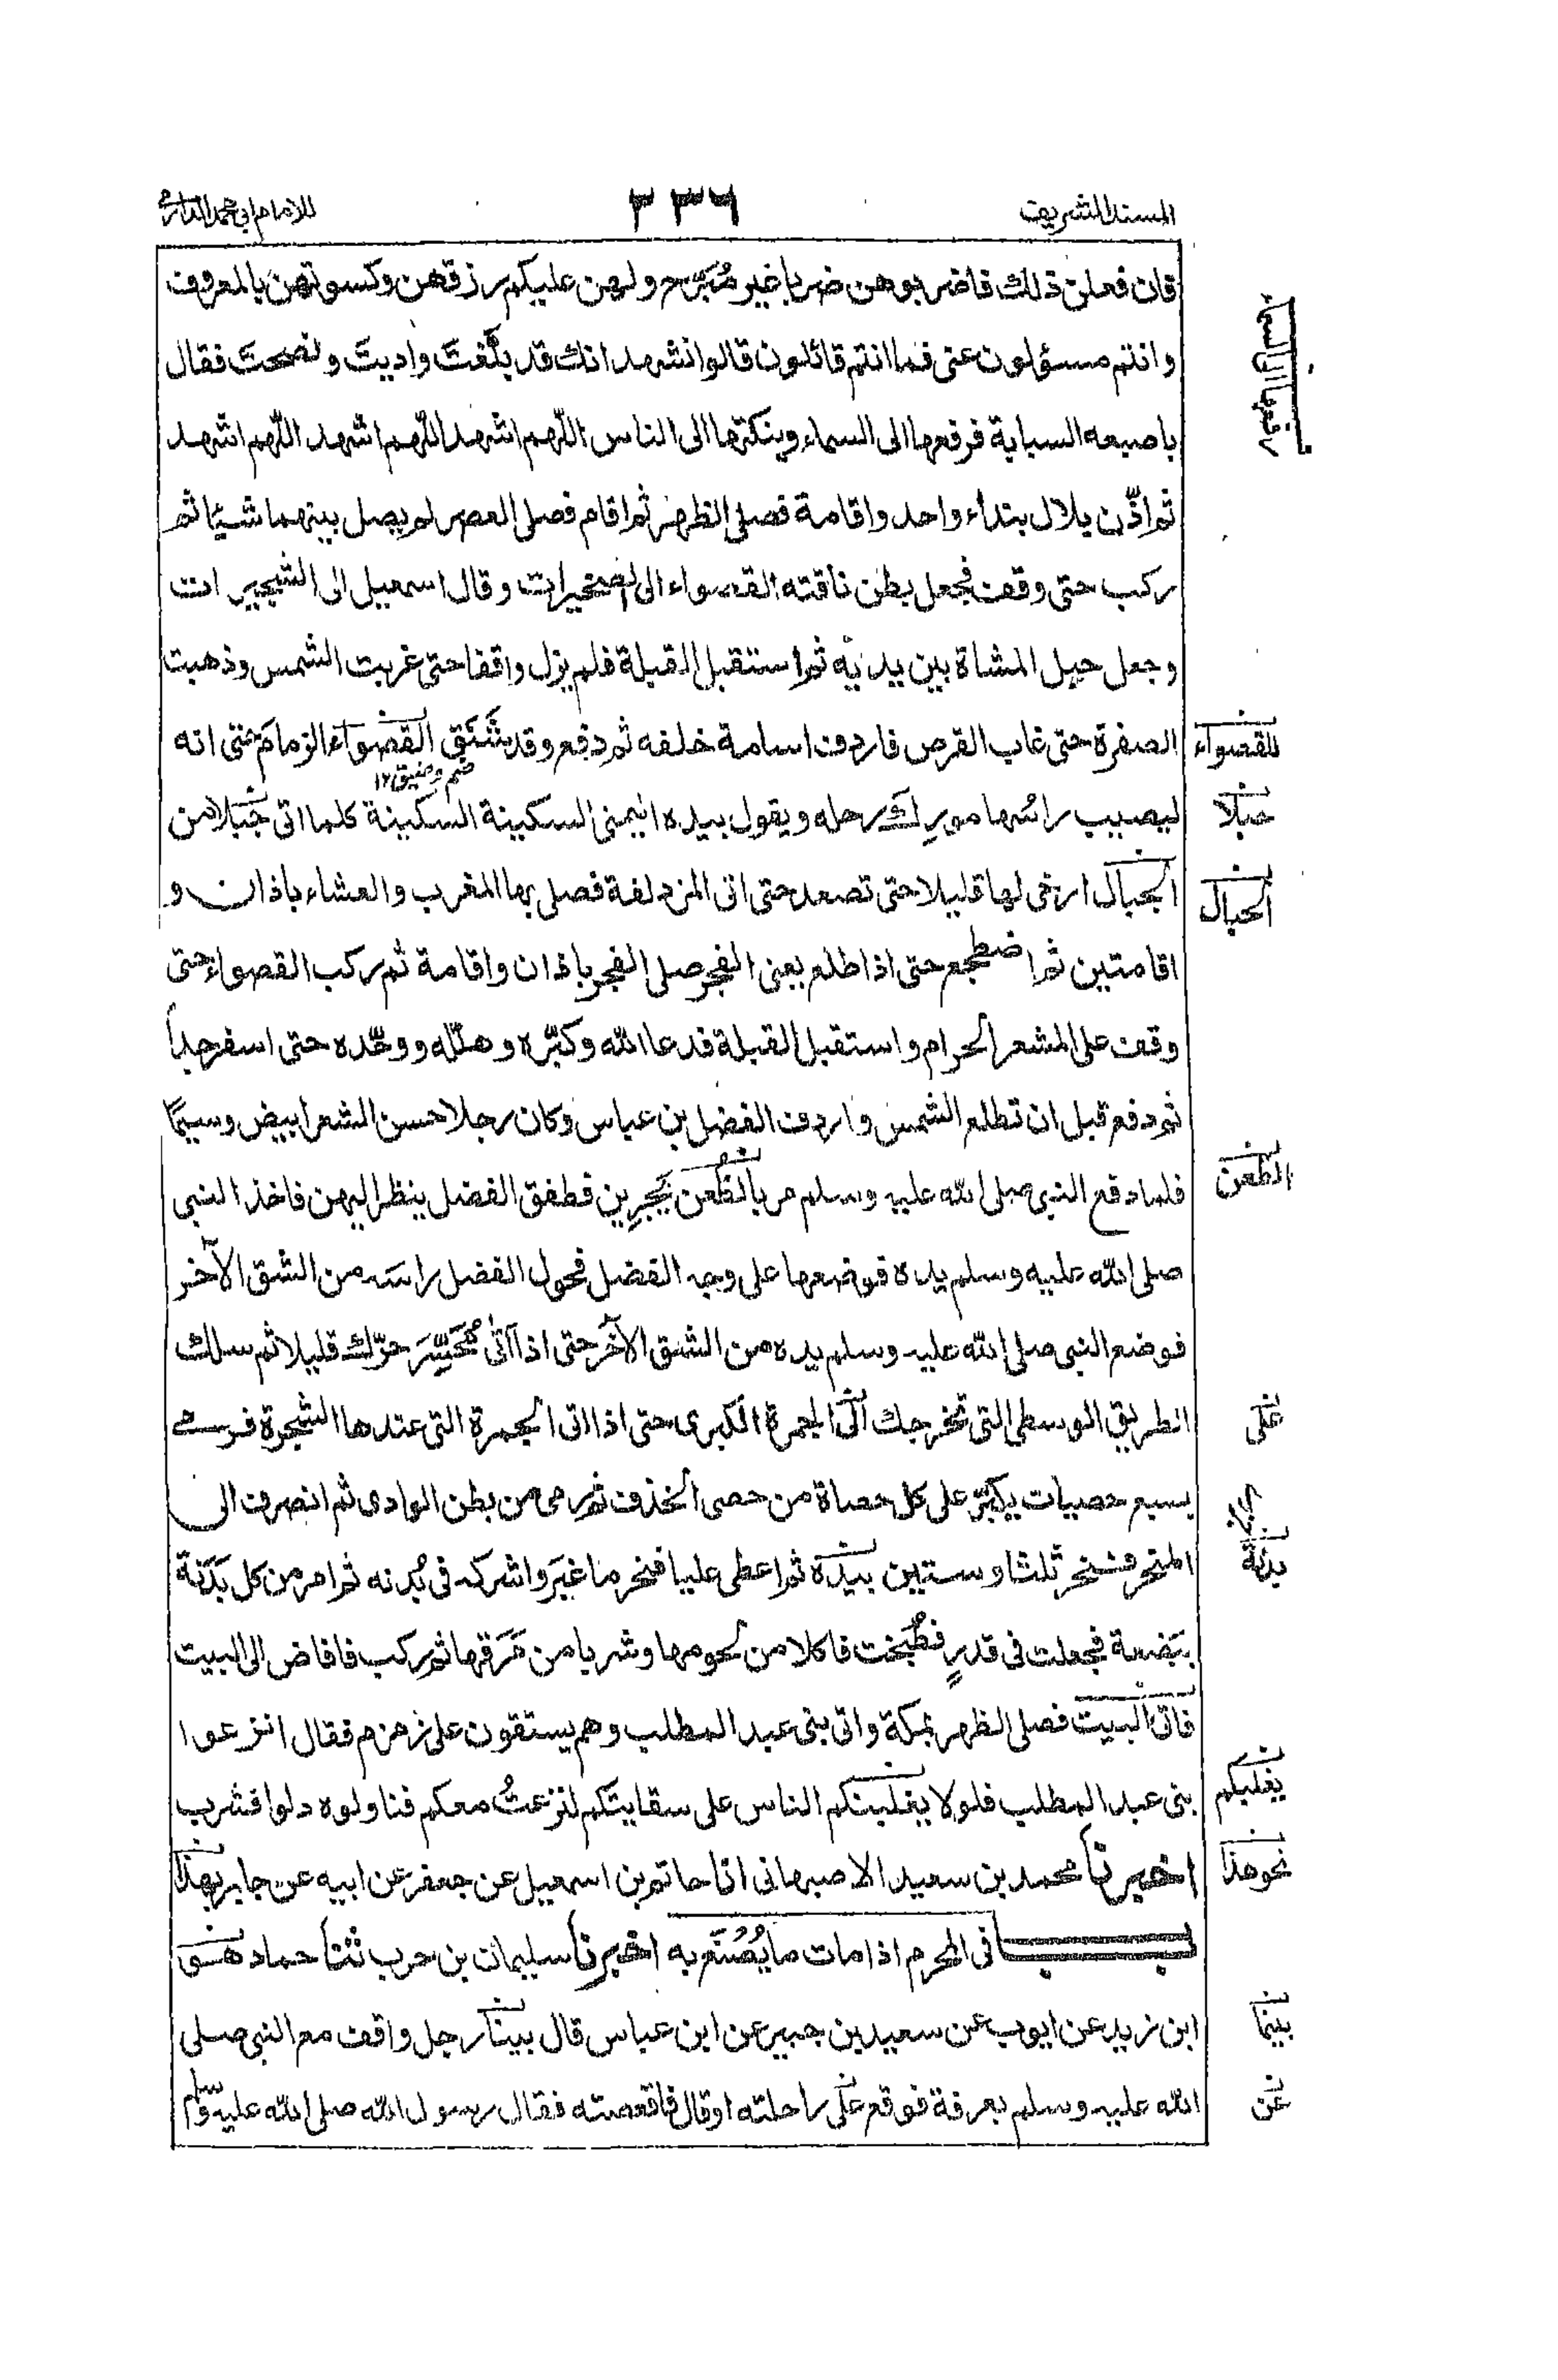 المسند الشريف
٣٣٦
للامام ابی محمد الدارمی
فان فعلن ذلك فاضربوهن ضربا غير مُبَرِّح ولهن عليكم رزقهن وكسوتهن بالمعروف
وانتم مسؤلون عنی فما انتم قائلون قالوا نشهد انك قد بلّغتَ واديتَ ونصحتَ فقال
باصبعه السبابة فرفعها الی السماء وينكتها الی الناس اللّهم اشهد اللّهم اشهد اللّهم اشهد
ثم اذّن بلال بنداء واحد واقامة فصلی الظهر ثم اقام فصلی العصر لم يصل بينهما شيئا ثم
ركب حتی وقف فجعل بطن ناقته القصواء الی الصخيرات وقال اسمعيل الی الشجيرات
وجعل حبل المشاة بين يديه ثم استقبل القبلة فلم يزل واقفا حتی غربت الشمس وذهبت
الصفرة حتی غاب القرص فاردف اسامة خلفه ثم دفع وقد شَنَق القصواء الزمامَ حتی انه
ضم وضيق ١٢
ليصيب رأسها مورِك رحله ويقول بيده اليمنی السكينة السكينة كلما اتی جبلا من
الجبال ارخی لها قليلا حتی تصعد حتی اتی المزدلفة فصلی بها المغرب والعشاء باذان و
اقامتين ثم اضطجع حتی اذا طلع يعنی الفجر صلی الفجر باذان واقامة ثم ركب القصواء حتی
وقف علی المشعر الحرام واستقبل القبلة فدعا الله وكبّره وهلّله ووحّده حتی اسفر جداً
ثم دفع قبل ان تطلع الشمس واردف الفضل بن عباس وكان رجلا حسن الشعر ابيض وسيمًا
فلما دفع النبی صلی الله عليه وسلم مر بالظُعن يجرين فطفق الفضل ينظر اليهن فاخذ النبی
صلی الله عليه وسلم يده فوضعها علی وجه الفضل فحول الفضل راسه من الشق الآخر
فوضع النبی صلی الله عليه وسلم يده من الشق الآخر حتی اذا اتی مُحَسِّرَ حرّك قليلا ثم سلك
الطريق الوسطی التی تخرجك الی الجمرة الكبری حتی اذا اتی الجمرة التی عندها الشجرة فرمی
بسبع حصيات يكبّر علی كل حصاة من حصی الخذف ثم رمی من بطن الوادی ثم انصرف الی
المنحر فنحر ثلثا وستين بيده ثم اعطی عليا فنحر ما غبر واشركه فی بُدنه ثم امر من كل بَدَنة
ببَضعة فجعلت فی قدرٍ فطُبخت فاكلا من لحومها وشربا من مَرَقها ثم ركب فافاض الی البيت
فاتی البيت فصلی الظهر بمكة واتی بنی عبد المطلب وهم يستقون علی زمزم فقال انزعوا
بنی عبد المطلب فلولا يغلبنكم الناس علی سقايتكم لنزعتُ معكم فناولوه دلوا فشرب
اخبرنا محمد بن سعيد الاصبهانی انا حاتم بن اسمعيل عن جعفر عن ابيه عن جابر بهذا
باب فی المحرم اذا مات ما يُصْنَع به اخبرنا سليمان بن حرب ثنا حماد هو
ابن زيد عن ايوب عن سعيد بن جبير عن ابن عباس قال بينا رجل واقف مع النبی صلی
الله عليه وسلم بعرفة فوقع علی راحلته او قال فاقعصته فقال رسول الله صلی الله عليه وسلم
رفعها الی السماء
للقصواء
حبلا
الحبال
الظعن
علی
بدنة
يغلبكم
نحو هذا
بينما
عن